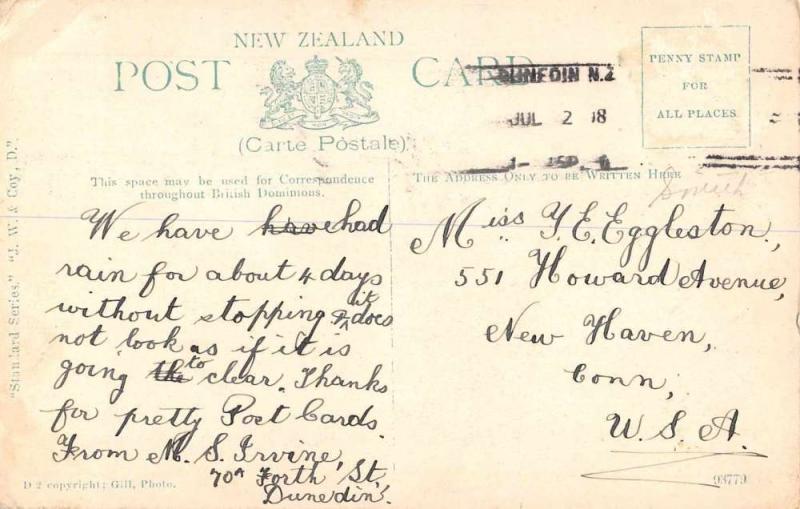 NEW ZEALAND
POST CARD
(Carte Postale)
DUNEDIN N.Z
JUL 2 08
PENNY STAMP
FOR
ALL PLACES
This space may be used for Correspondence
throughout British Dominions.
THE ADDRESS ONLY TO BE WRITTEN HERE
"Standard Series." "J. W. & Coy, D."
We have have had
rain for about 4 days
without stopping & it does
not look as if it is
going the to clear. Thanks
for pretty Post Cards.
From M. S. Irvine,
70A Forth St,
Dunedin.
Miss Y. E. Eggleston,
551 Howard Avenue,
New Haven,
Conn,
U. S. A.
D 2 copyright; Gill, Photo.
93779